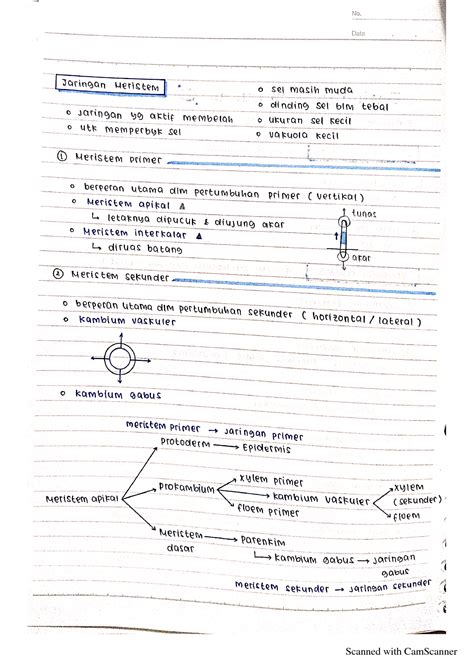 No.
Date
Jaringan Meristem
o sel masih muda
o dinding sel blm tebal
o jaringan yg aktif membelah
o ukuran sel kecil
o utk memperbyk sel
o vakuola kecil
① Meristem primer
o berperan utama dlm pertumbuhan primer (vertikal)
o Meristem apikal
↳ letaknya dipucuk & diujung akar
tunas
o Meristem interkalar
↳ diruas batang
akar
② Meristem sekunder
o berperan utama dlm pertumbuhan sekunder (horizontal / lateral)
o kambium vaskuler
o kambium gabus
meristem primer → jaringan primer
Protoderm → Epidermis
Meristem apikal
Prokambium
xylem primer
kambium vaskuler
floem primer
xylem
(sekunder)
floem
Meristem dasar
Parenkim
↳ kambium gabus → jaringan gabus
meristem sekunder → jaringan sekunder
Scanned with CamScanner